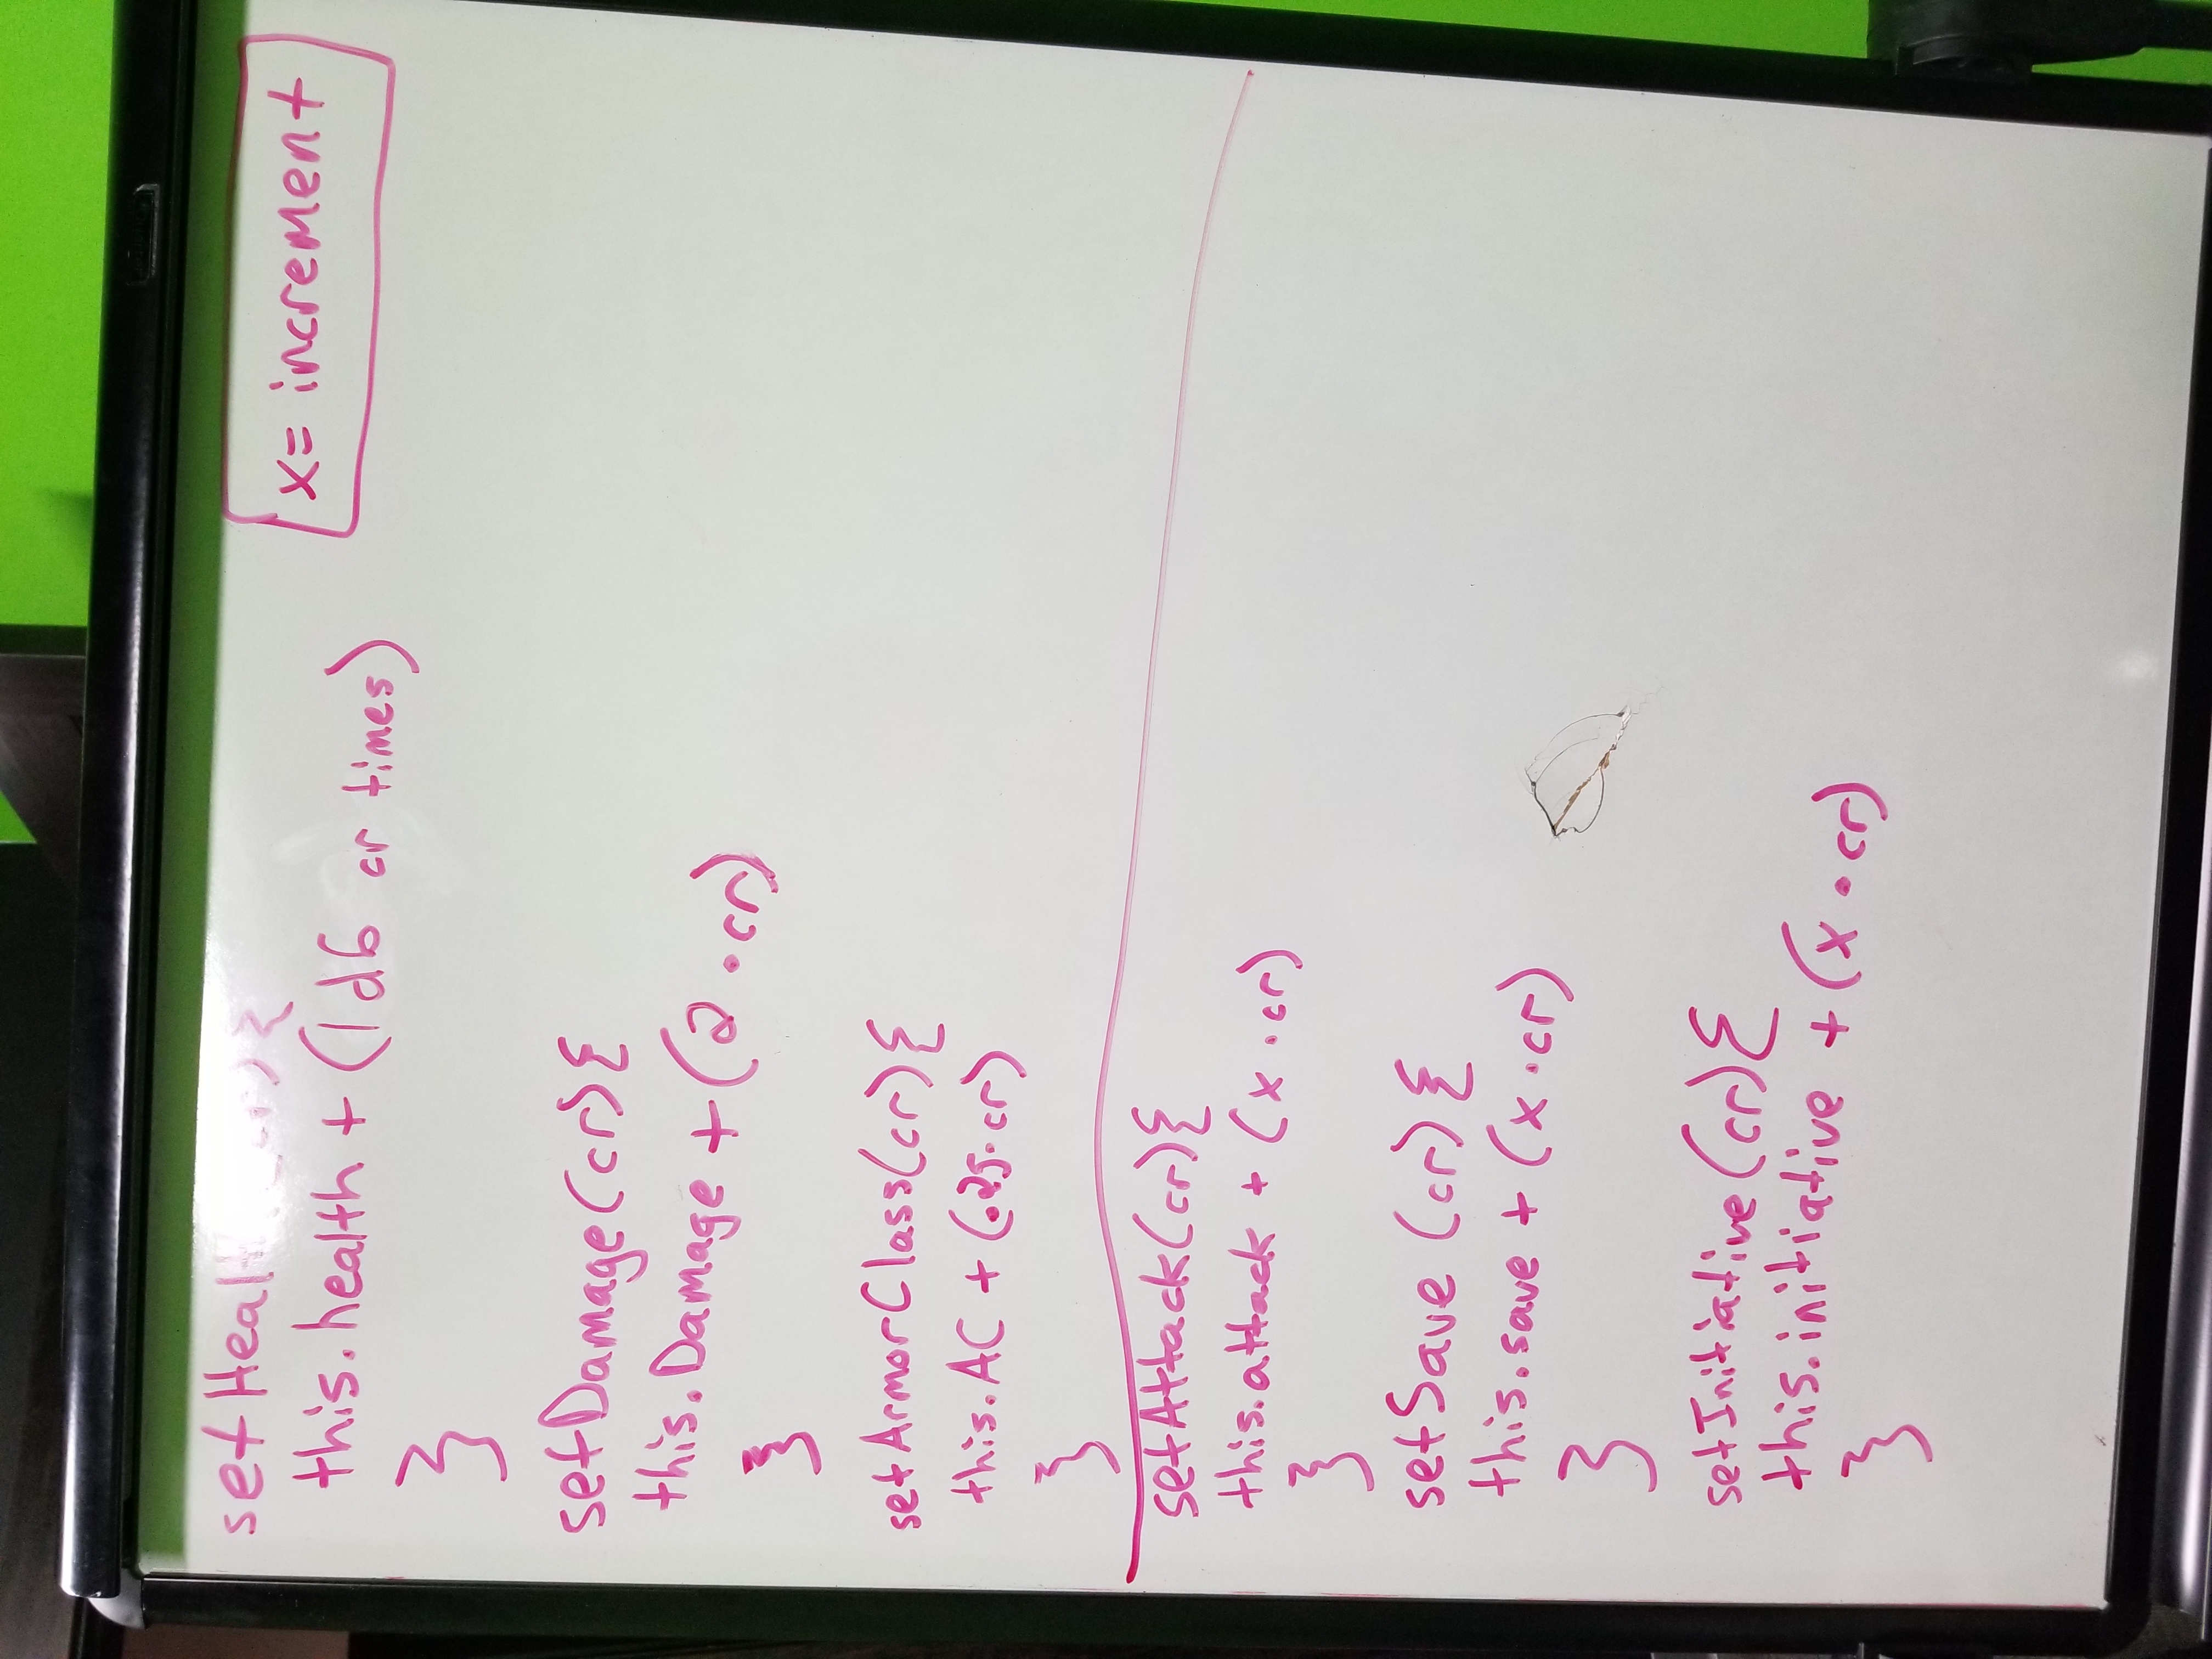 setHealth(cr){
x= increment
this.health + (1d6 cr times)
}
setDamage(cr){
this.Damage + (2 · cr)
}
setArmorClass(cr){
this.AC + (.25·cr)
}
setAttack(cr){
this.attack + (x ·cr)
}
setSave (cr){
this.save + (x ·cr)
}
setInitiative(cr){
this.initiative + (x · cr)
}